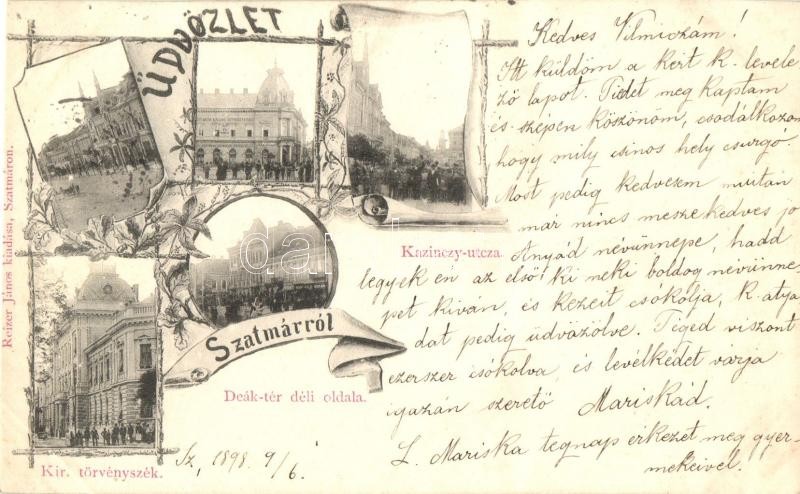 ÜDVÖZLET
Szatmárról
Kazinczy-utcza
Deák-tér déli oldala.
Kir. törvényszék.
Reizer János kiadása, Szatmáron.
Sz, 1898. 9/6.
Kedves Vilmiczám!
Itt küldöm a kért k. levele
ző lapot. Tiedet meg kaptam
és szépen köszönöm, csodálkozom
hogy mily csinos hely Csurgó.
Most pedig kedvezem miután
már nincs messze kedves jó
Anyád névünnepe, hadd
legyek én az első! ki neki boldog névünne
pet kiván, és kezeit csókolja, k. atyá
dat pedig üdvözölve. Tiged viszont
ezerszer csókolva, és levélkédet várja
igazán szerető Mariskád.
L. Mariska tegnap érkezet meg gyer-
mekeivel.